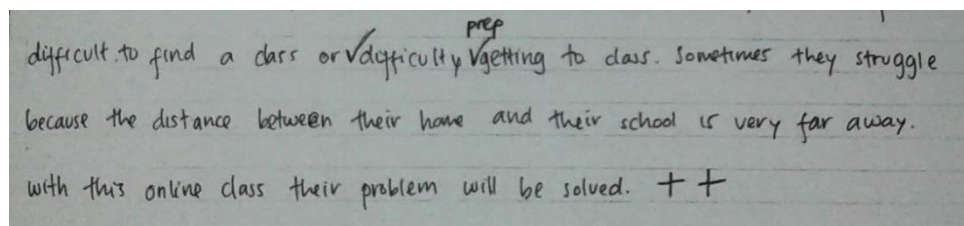 prep
difficult to find a class or √difficulty √getting to class. Sometimes they struggle
because the distance between their home and their school is very far away.
with this online class their problem will be solved. + +